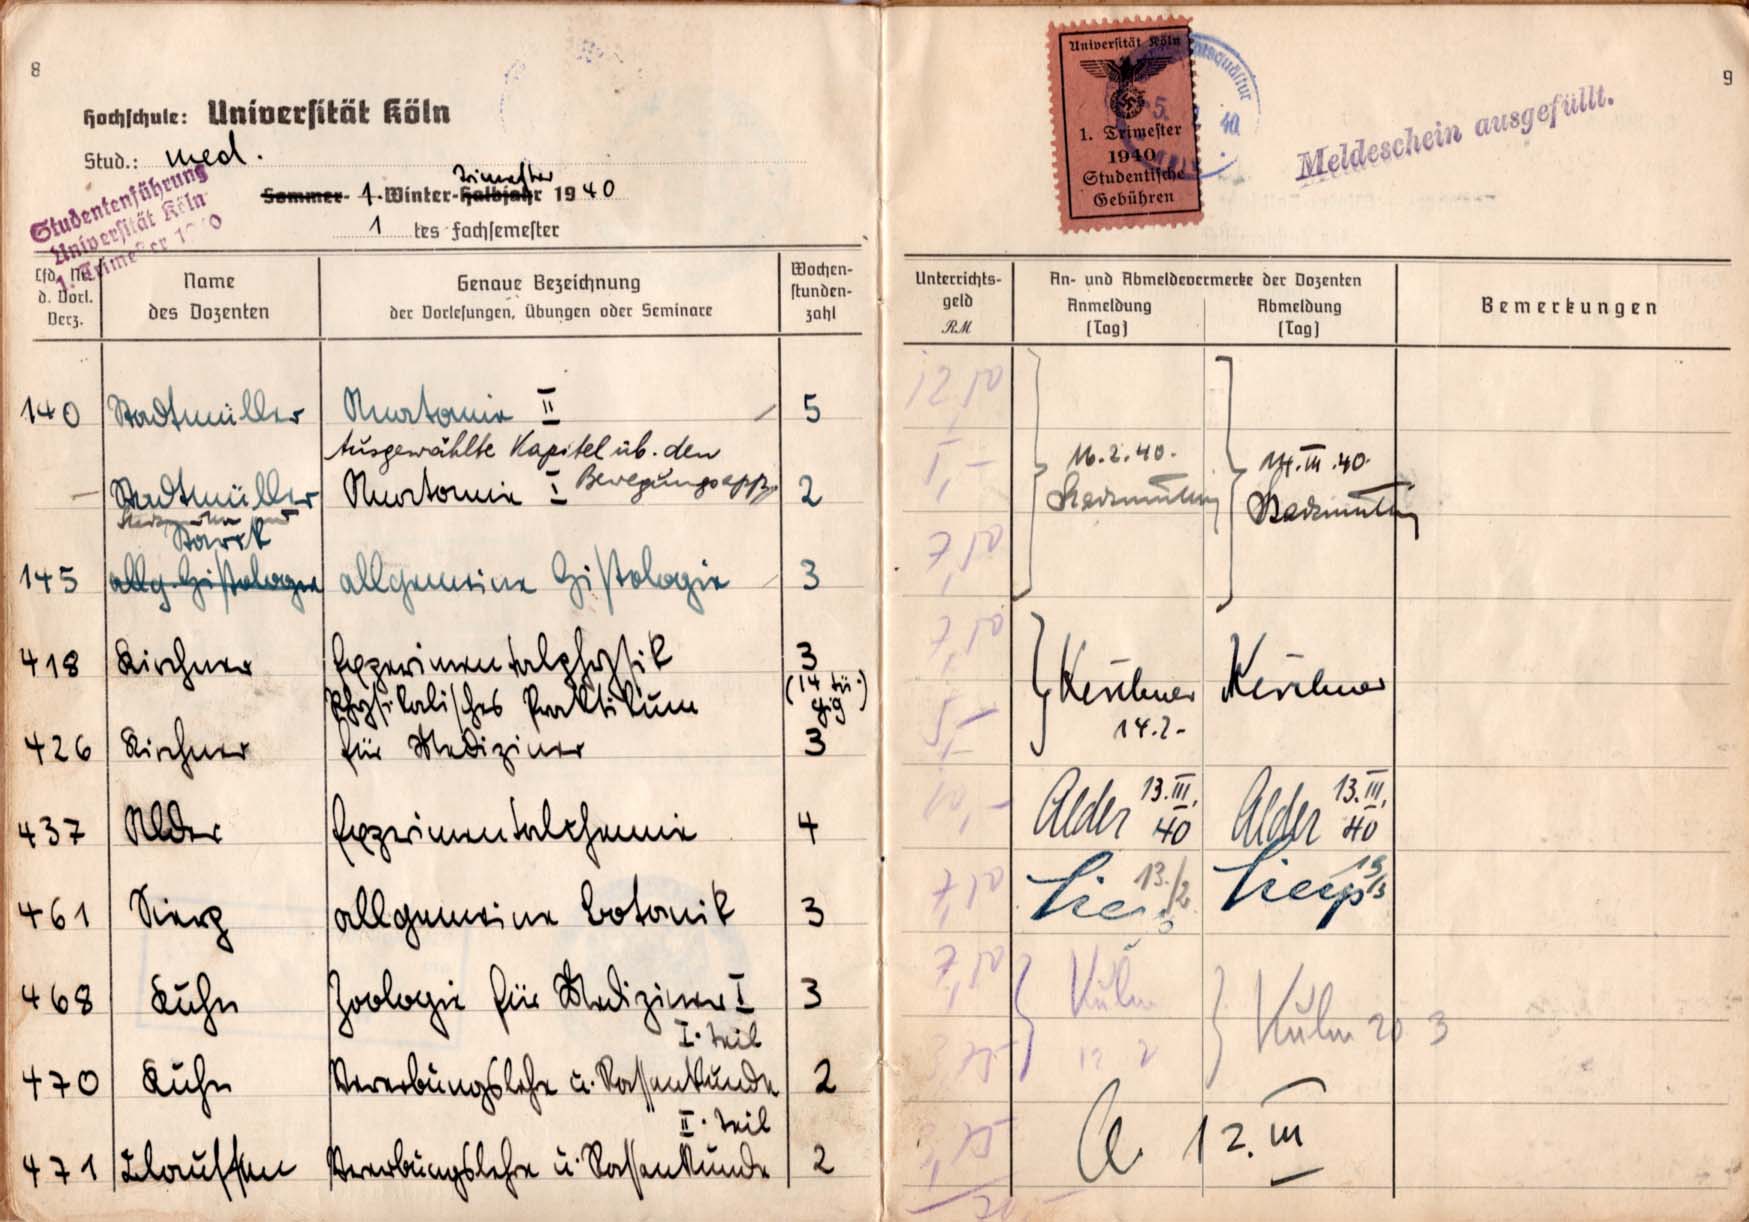 8
Hochschule: Universität Köln
Stud.: med.
Studentenführung
Universität Köln
1. Trimester 1940
Trimester
Sommer- 1. Winter-Halbjahr 1940
1 tes Fachsemester
Lfd. Nr. d. Vorl. Verz. Name des Dozenten Genaue Bezeichnung der Vorlesungen, Übungen oder Seminare Wochenstundenzahl
140 Stadtmüller Anatomie II 5
Ausgewählte Kapitel üb. den Bewegungsapp.
Stadtmüller Anatomie I 2
Stadtmüller und
Starck
145 allg. Histologie allgemeine Histologie 3
418 Kirchner Experimentalphysik 3
Physikalisches Praktikum (14 tä-gig)
426 Kirchner für Mediziner 3
437 Alder Experimentalchemie 4
461 Sierp allgemeine Botanik 3
468 Kuhn Zoologie für Mediziner I 3
I. Teil
470 Kuhn Vererbungslehre u. Rassenkunde 2
II. Teil
471 Claussen Vererbungslehre u. Rassenkunde 2
9
Universität Köln
1. Trimester
1940
Studentische
Gebühren
5. 40
Meldeschein ausgefüllt.
Unterrichtsgeld RM An- und Abmeldevermerke der Dozenten Bemerkungen
Anmeldung (Tag) Abmeldung (Tag)
16.2.40. 14.III.40.
Stadtmüller Stadtmüller
Kirchner Kirchner
14.2.
Alder 13.III.40 Alder 13.III.40
Sierp 13./2 Sierp 13/3
Kühn Kühn 20 3
12 2
Cl. 12.III